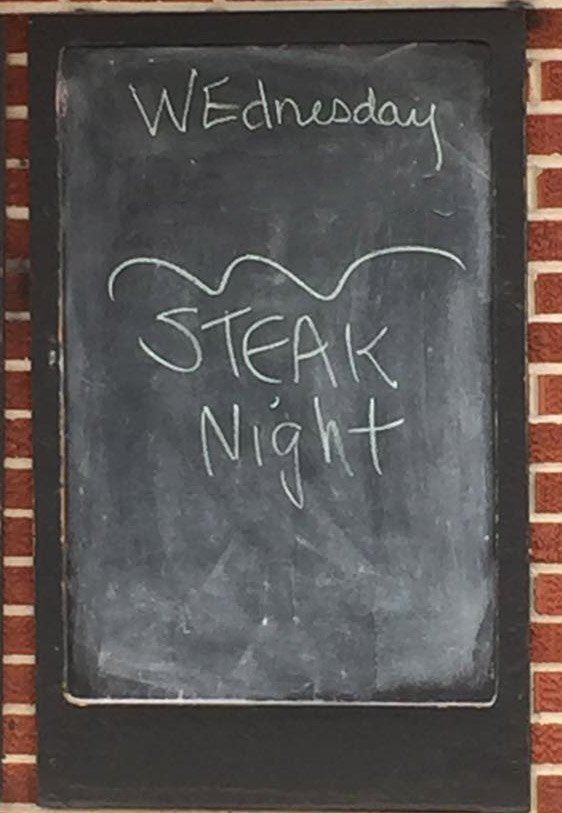 WEdnesday
STEAK
Night